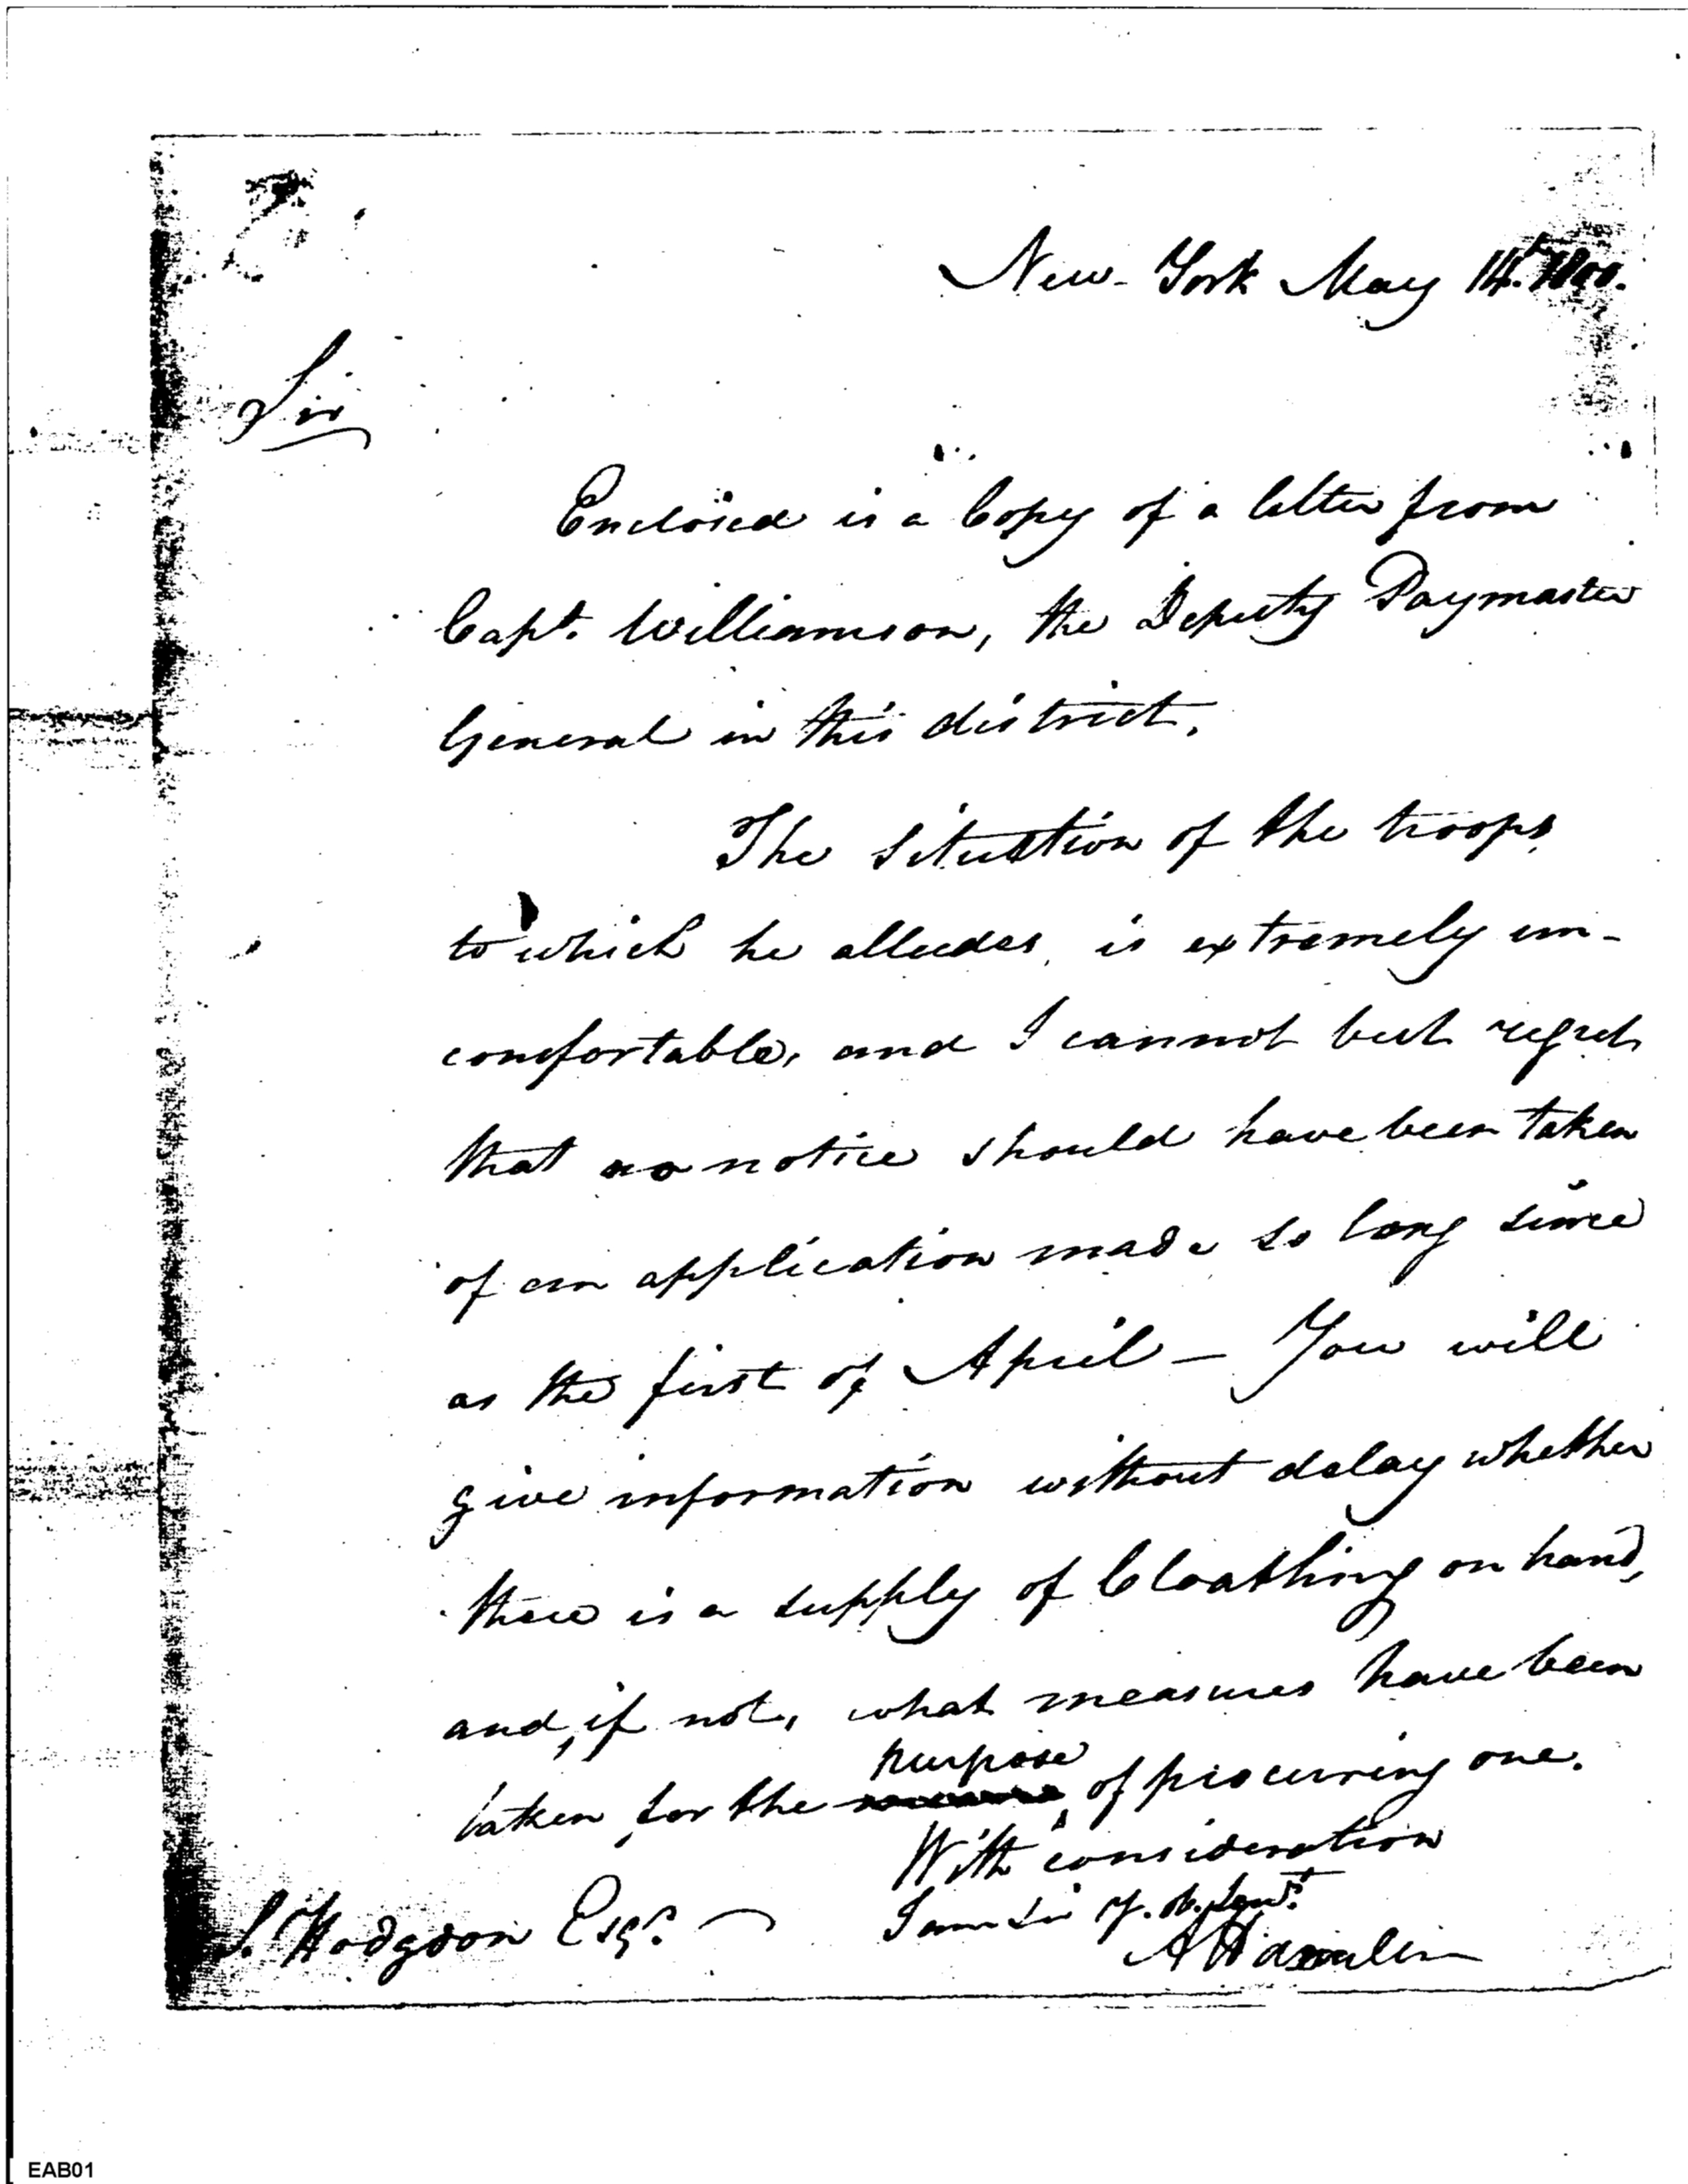 New-York May 14th. 1800.
Sir
Enclosed is a Copy of a letter from
Capt. Williamson, the Deputy Paymaster
General in this district.
The situation of the troops,
to which he alludes, is extremely un-
comfortable, and I cannot but regret
that no notice should have been taken
of an application made so long since
as the first of April — You will
give information without delay whether
there is a supply of Cloathing on hand,
and, if not, what measures have been
purpose
taken, for the of procuring one.
With consideration
I am Sir Y. ob. Servt.
S. Hodgdon Esqr.
A Hamilton
EAB01